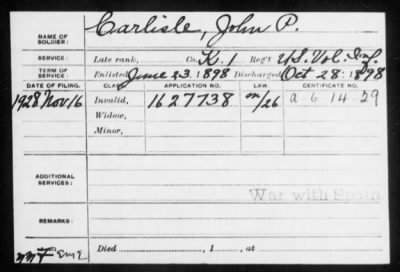 NAME OF SOLDIER: Carlisle, John P.
SERVICE: Late rank, Co. K. 1 Reg't U.S. Vol. Inf.
TERM OF SERVICE: Enlisted June 23. 1898 Discharged Oct 28. 1898
DATE OF FILING. CLASS. APPLICATION NO. LAW. CERTIFICATE NO.
1928 Nov. 16 Invalid, 1627738 m/26 a 6 14 29
Widow,
Minor,
ADDITIONAL SERVICES:
War with Spain
REMARKS:
Died , 1 , at
EME